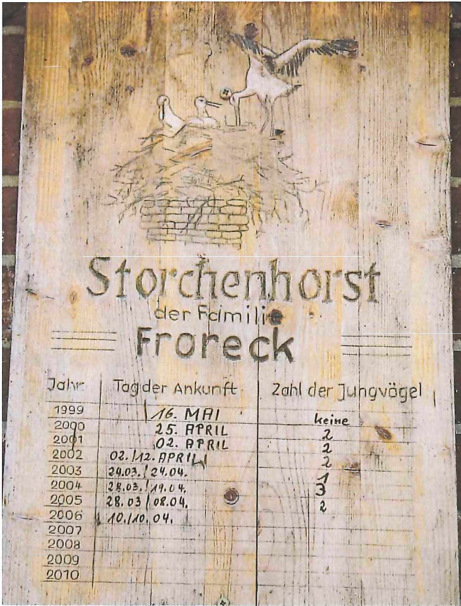 Storchenhorst
der Familie
Froreck
Jahr Tag der Ankunft Zahl der Jungvögel
1999 16. MAI keine
2000 25. APRIL 2
2001 02. APRIL 2
2002 02./12. APRIL 2
2003 24.03./24.04. 1
2004 28.03./19.04. 3
2005 28.03/08.04. 2
2006 10./10.04.
2007
2008
2009
2010